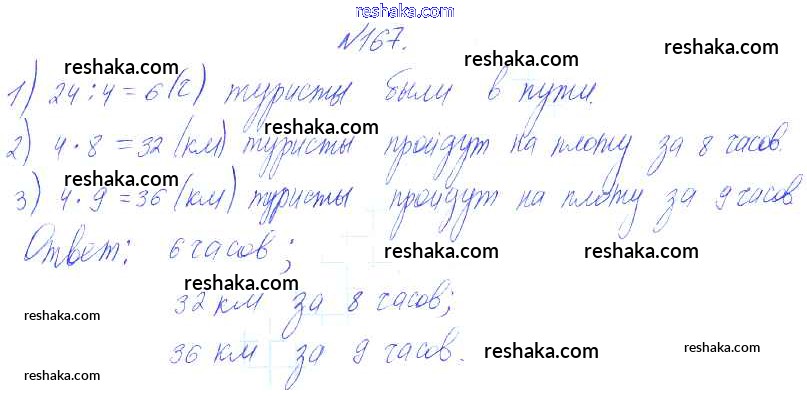 reshaka.com
№167.
reshaka.com reshaka.com
1) 24 : 4 = 6 (ч) туристы были в пути.
reshaka.com reshaka.com
2) 4 · 8 = 32 (км) туристы пройдут на плоту за 8 часов.
reshaka.com reshaka.com
3) 4 · 9 = 36 (км) туристы пройдут на плоту за 9 часов
Ответ: 6 часов;
reshaka.com reshaka.com
reshaka.com
32 км за 8 часов;
reshaka.com
36 км за 9 часов.
reshaka.com reshaka.com
reshaka.com